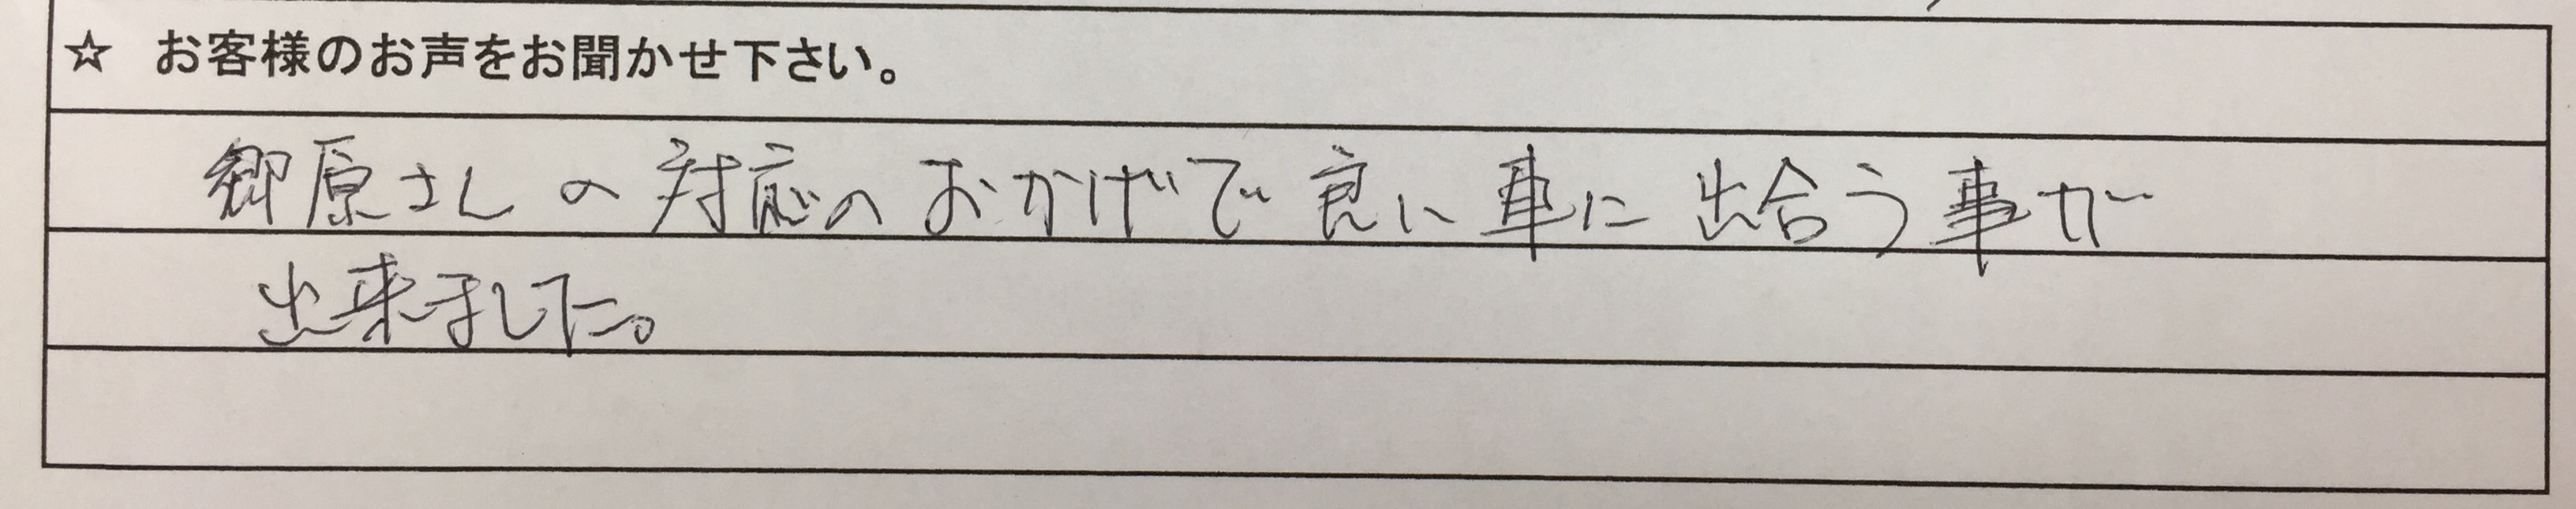 ☆ お客様のお声をお聞かせ下さい。
郷原さんの対応のおかげで良い車に出合う事が
出来ました。